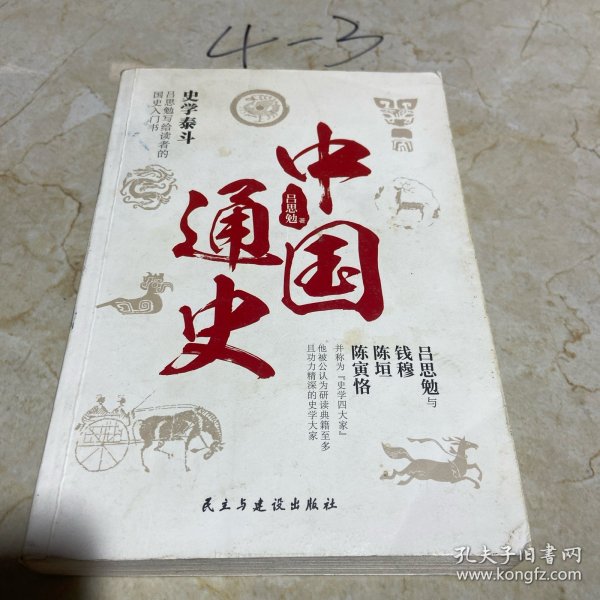 4-3
史学泰斗
吕思勉写给读者的
国史入门书
中国
吕思勉 著
通史
吕思勉与
钱穆
陈垣
陈寅恪
并称为『史学四大家』
他被公认为研读典籍至多
且功力精深的史学大家
民主与建设出版社
孔夫子旧书网
www.kongfz.com